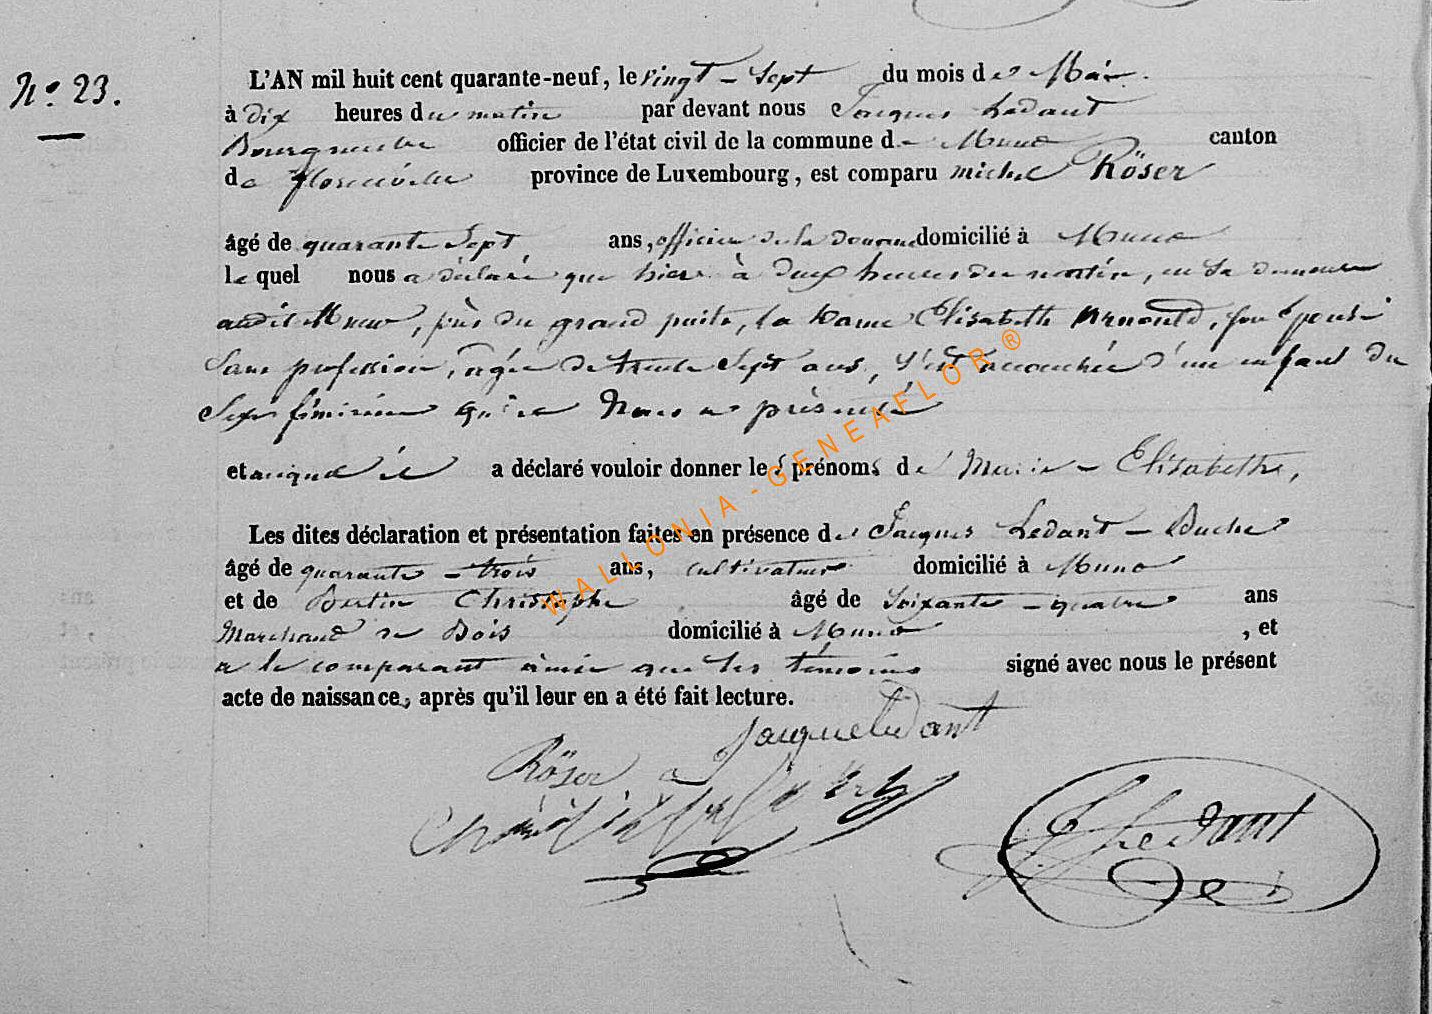 N.° 23.
L'AN mil huit cent quarante-neuf, le vingt-sept du mois de Mai.
à dix heures du matin par devant nous Jacques Ledant
Bourgmestre officier de l'état civil de la commune de Muno canton
de Florenville province de Luxembourg, est comparu michel Röser
âgé de quarante Sept ans, officier de la douane domicilié à Muno
le quel nous a déclaré que hier à deux heures du matin, en sa demeure
audit Muno, près du grand puits, la Dame Elisabeth Arnould, son épouse
Sans profession, agée de trente Sept ans, s'est accouchée d'un enfant du
Sexe féminin qu'il Nous a présenté
et auquel il a déclaré vouloir donner les prénoms de Marie-Elisabeth,
Les dites déclaration et présentation faites en présence de Jacques Ledant-Buche
âgé de quarante-trois ans, cultivateur domicilié à Muno
et de Bertin Christophe âgé de Soixante-quatre ans
Marchand de Bois domicilié à Muno, et
a le comparant ainsi que les témoins signé avec nous le présent
acte de naissance, après qu'il leur en a été fait lecture.
Jacque Ledant
Röser
Ledant
WALLONIA-GENEAFLOR®